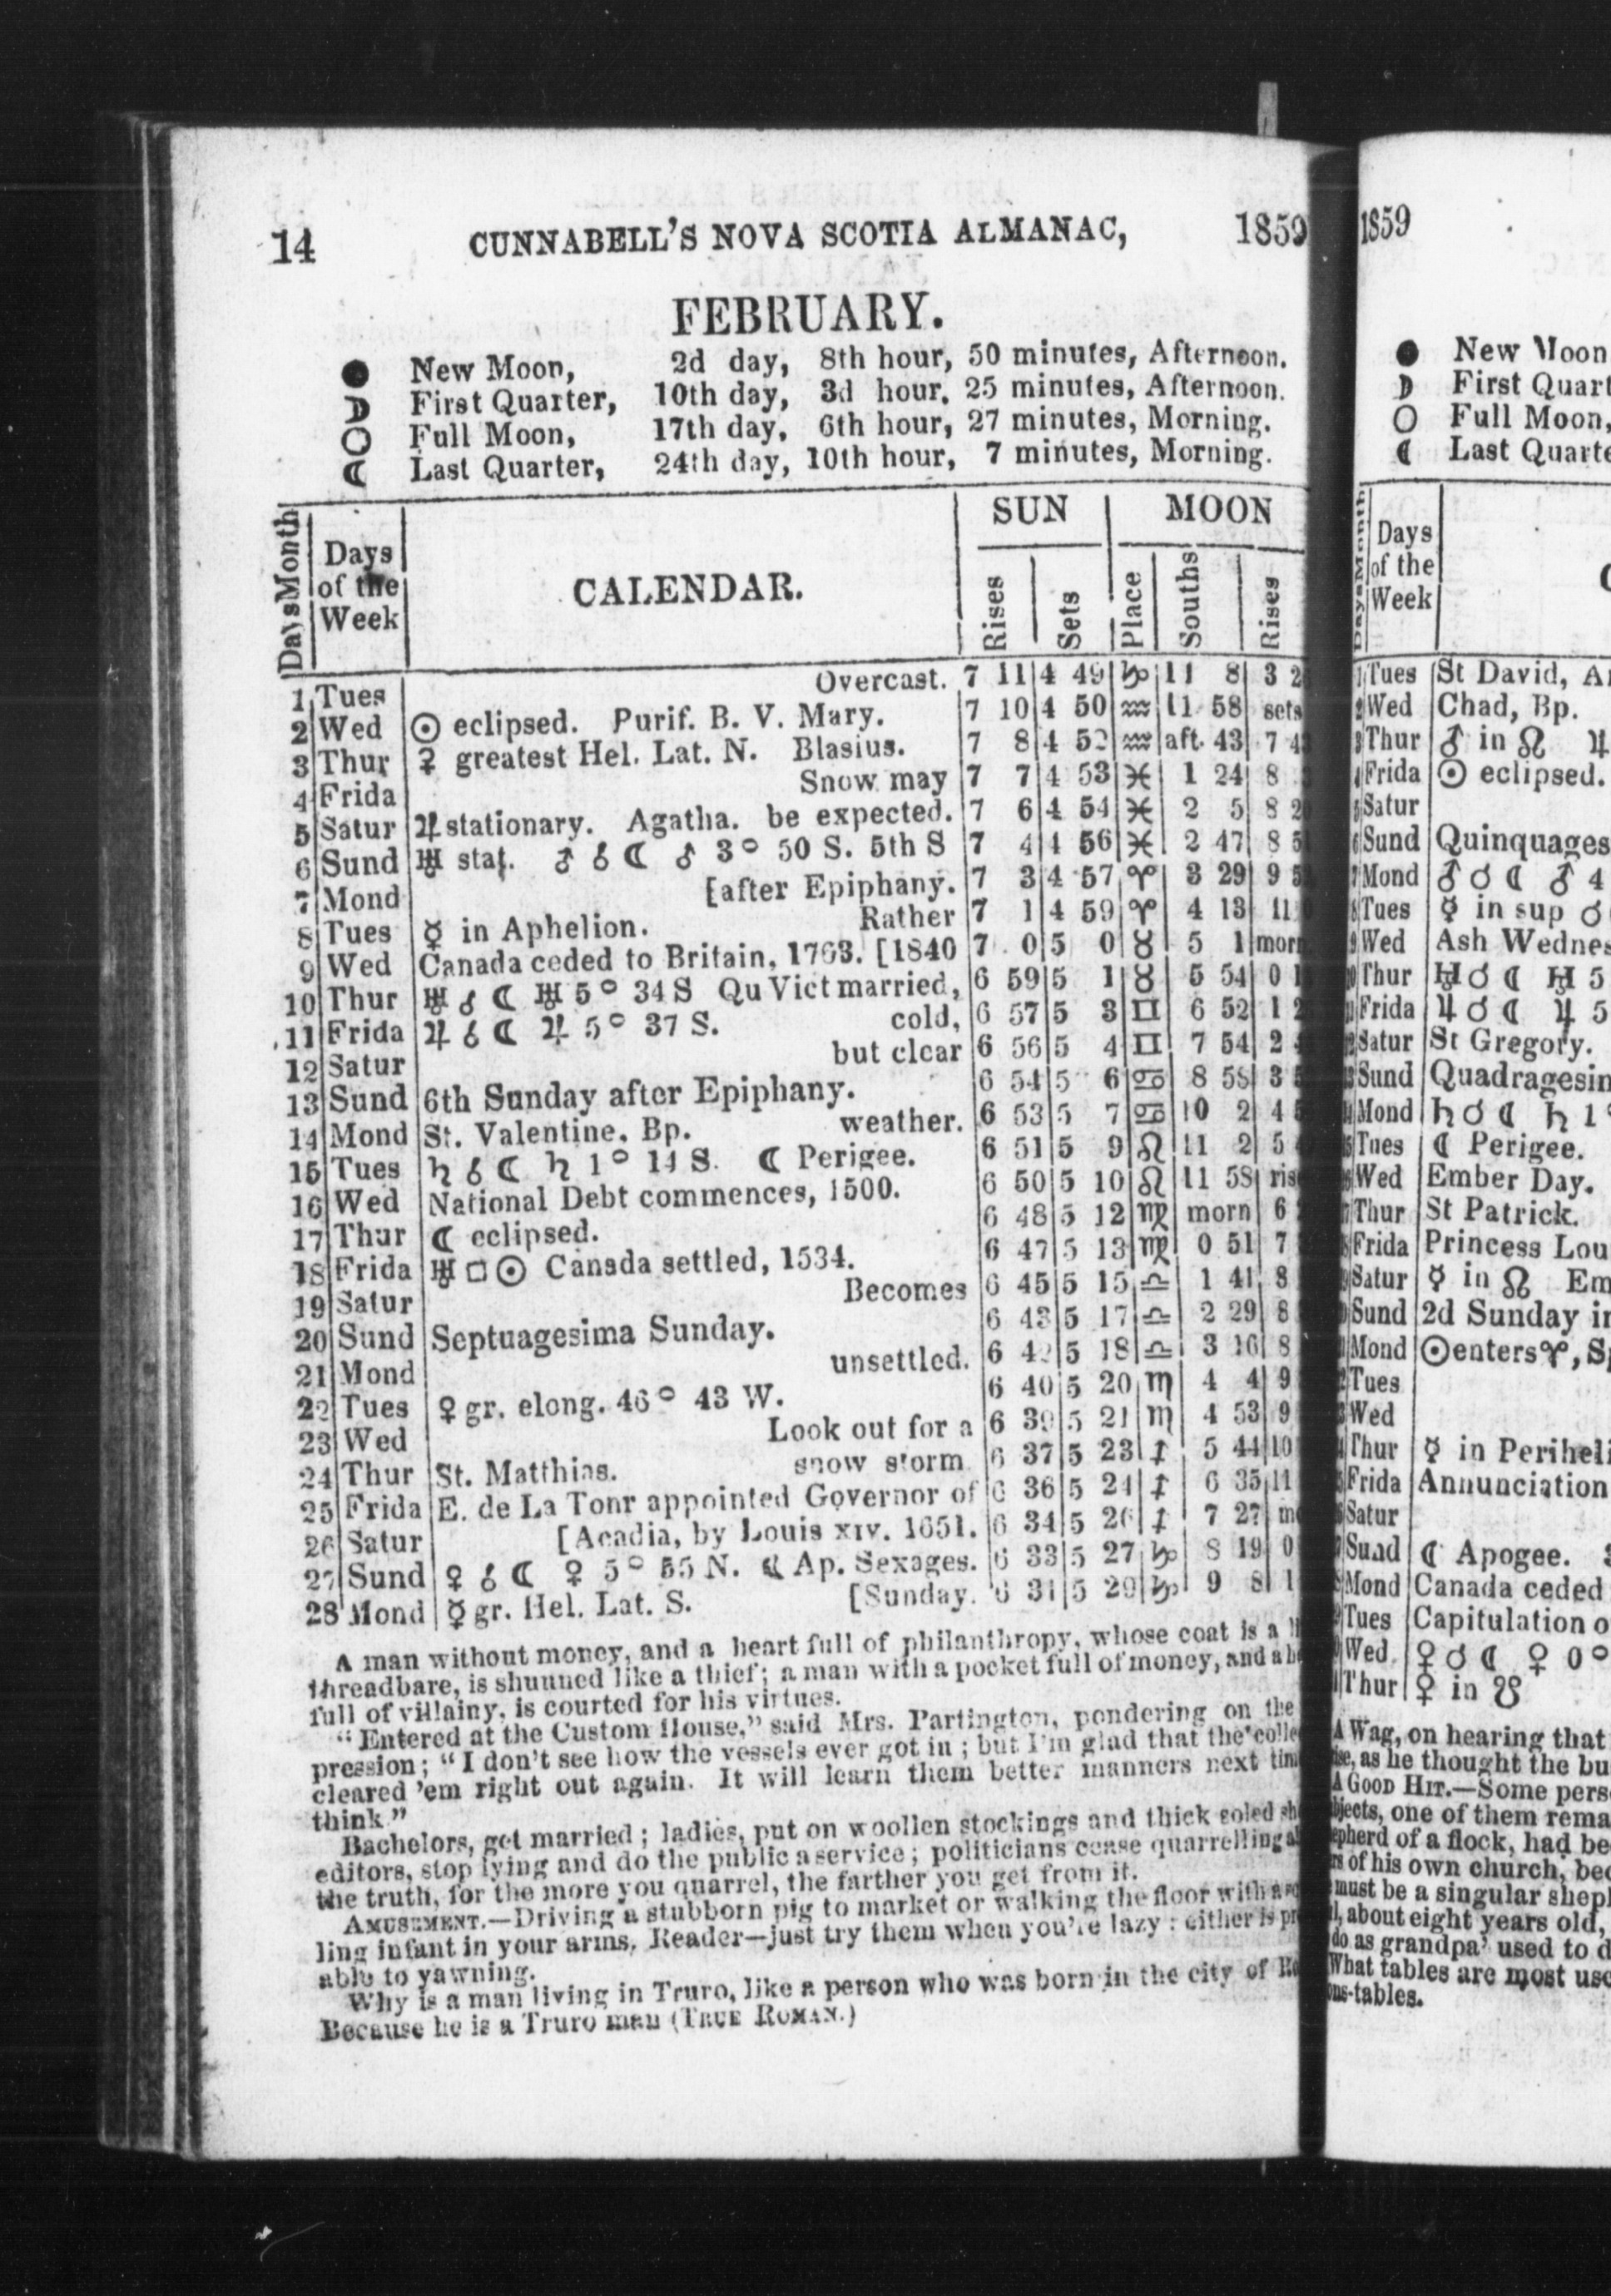 14 CUNNABELL'S NOVA SCOTIA ALMANAC, 1859
FEBRUARY.
● New Moon, 2d day, 8th hour, 50 minutes, Afternoon.
☽ First Quarter, 10th day, 3d hour, 25 minutes, Afternoon.
○ Full Moon, 17th day, 6th hour, 27 minutes, Morning.
☾ Last Quarter, 24th day, 10th hour, 7 minutes, Morning.
Days Month Days of the Week CALENDAR. SUN Rises Sets MOON Place Souths Rises
1 Tues Overcast. 7 11 4 49 ♑ 11 8 3
2 Wed ☉ eclipsed. Purif. B. V. Mary. 7 10 4 50 ♒ 11 58 sets
3 Thur ☿ greatest Hel. Lat. N. Blasius. 7 8 4 52 ♒ aft. 43 7
4 Frida Snow may 7 7 4 53 ♓ 1 24 8
5 Satur ♃ stationary. Agatha. be expected. 7 6 4 54 ♓ 2 5 8
6 Sund ♅ stat. ♂ ☌ ☾ ♂ 3° 50 S. 5th S 7 4 4 56 ♓ 2 47 8
7 Mond [after Epiphany. 7 3 4 57 ♈ 3 29 9
8 Tues ☿ in Aphelion. Rather 7 1 4 59 ♈ 4 13 11
9 Wed Canada ceded to Britain, 1763. [1840 7 0 5 0 ♉ 5 1 morn
10 Thur ♅ ☌ ☾ ♅ 5° 34 S Qu Vict married, 6 59 5 1 ♉ 5 54 0
11 Frida ♃ ☌ ☾ ♃ 5° 37 S. cold, 6 57 5 3 ♊ 6 52 1
12 Satur but clear 6 56 5 4 ♊ 7 54 2
13 Sund 6th Sunday after Epiphany. 6 54 5 6 ♋ 8 58 3
14 Mond St. Valentine, Bp. weather. 6 53 5 7 ♋ 10 2 4
15 Tues ♄ ☌ ☾ ♄ 1° 14 S. ☾ Perigee. 6 51 5 9 ♌ 11 2 5
16 Wed National Debt commences, 1500. 6 50 5 10 ♌ 11 58
17 Thur ☾ eclipsed. 6 48 5 12 ♍ morn 6
18 Frida ♅ □ ☉ Canada settled, 1534. 6 47 5 13 ♍ 0 51 7
19 Satur Becomes 6 45 5 15 ♎ 1 41 8
20 Sund Septuagesima Sunday. 6 43 5 17 ♎ 2 29 8
21 Mond unsettled. 6 42 5 18 ♎ 3 16 8
22 Tues ♀ gr. elong. 46° 43 W. 6 40 5 20 ♏ 4 4 9
23 Wed Look out for a 6 39 5 21 ♏ 4 53 9
24 Thur St. Matthias. snow storm 6 37 5 23 ♐ 5 44 10
25 Frida E. de La Tour appointed Governor of 6 36 5 24 ♐ 6 35 11
26 Satur [Acadia, by Louis XIV. 1651. 6 34 5 26 ♐ 7 27
27 Sund ♀ ☌ ☾ ♀ 5° 55 N. ☾ Ap. Sexages. 6 33 5 27 ♑ 8 19 0
28 Mond ☿ gr. Hel. Lat. S. [Sunday. 6 31 5 29 ♑ 9 8 1
A man without money, and a heart full of philanthropy, whose coat is a
threadbare, is shunned like a thief; a man with a pocket full of money, and a
full of villainy, is courted for his virtues.
"Entered at the Custom House," said Mrs. Partington, pondering on the
pression; "I don't see how the vessels ever got in; but I'm glad that the
cleared 'em right out again. It will learn them better manners next
think"
Bachelors, get married; ladies, put on woollen stockings and thick soled
editors, stop lying and do the public a service; politicians cease quarrelling
the truth, for the more you quarrel, the farther you get from it.
AMUSEMENT.—Driving a stubborn pig to market or walking the floor with a
ling infant in your arms, Reader—just try them when you're lazy: either is
able to yawning.
Why is a man living in Truro, like a person who was born in the city of
Because he is a Truro man (TRUE ROMAN.)
1859
● New Moon
☽ First Quart
○ Full Moon,
☾ Last Quarte
Days Month Days of the Week
Tues St David,
Wed Chad, Bp.
Thur ♂ in ☊ ♃
Frida ☉ eclipsed.
Satur
Sund Quinquages
Mond ♂ ☌ ☾ ♂ 4
Tues ☿ in sup ☌
Wed Ash Wednes
Thur ♅ ☌ ☾ ♅ 5
Frida ♃ ☌ ☾ ♃ 5
Satur St Gregory.
Sund Quadragesin
Mond ♄ ☌ ☾ ♄ 1°
Tues ☾ Perigee.
Wed Ember Day.
Thur St Patrick.
Frida Princess Lou
Satur ☿ in ☊ Em
Sund 2d Sunday in
Mond ☉ enters ♈, S
Tues
Wed
Thur ☿ in Periheli
Frida Annunciation
Satur
Sund ☾ Apogee.
Mond Canada ceded
Tues Capitulation o
Wed ♀ ☌ ☾ ♀ 0°
Thur ♀ in ☋
A Wag, on hearing that
as he thought the bu
A GOOD HIT.—Some pers
one of them rema
of a flock, had be
of his own church, bec
must be a singular shepl
about eight years old,
do as grandpa' used to d
What tables are most use
tables.